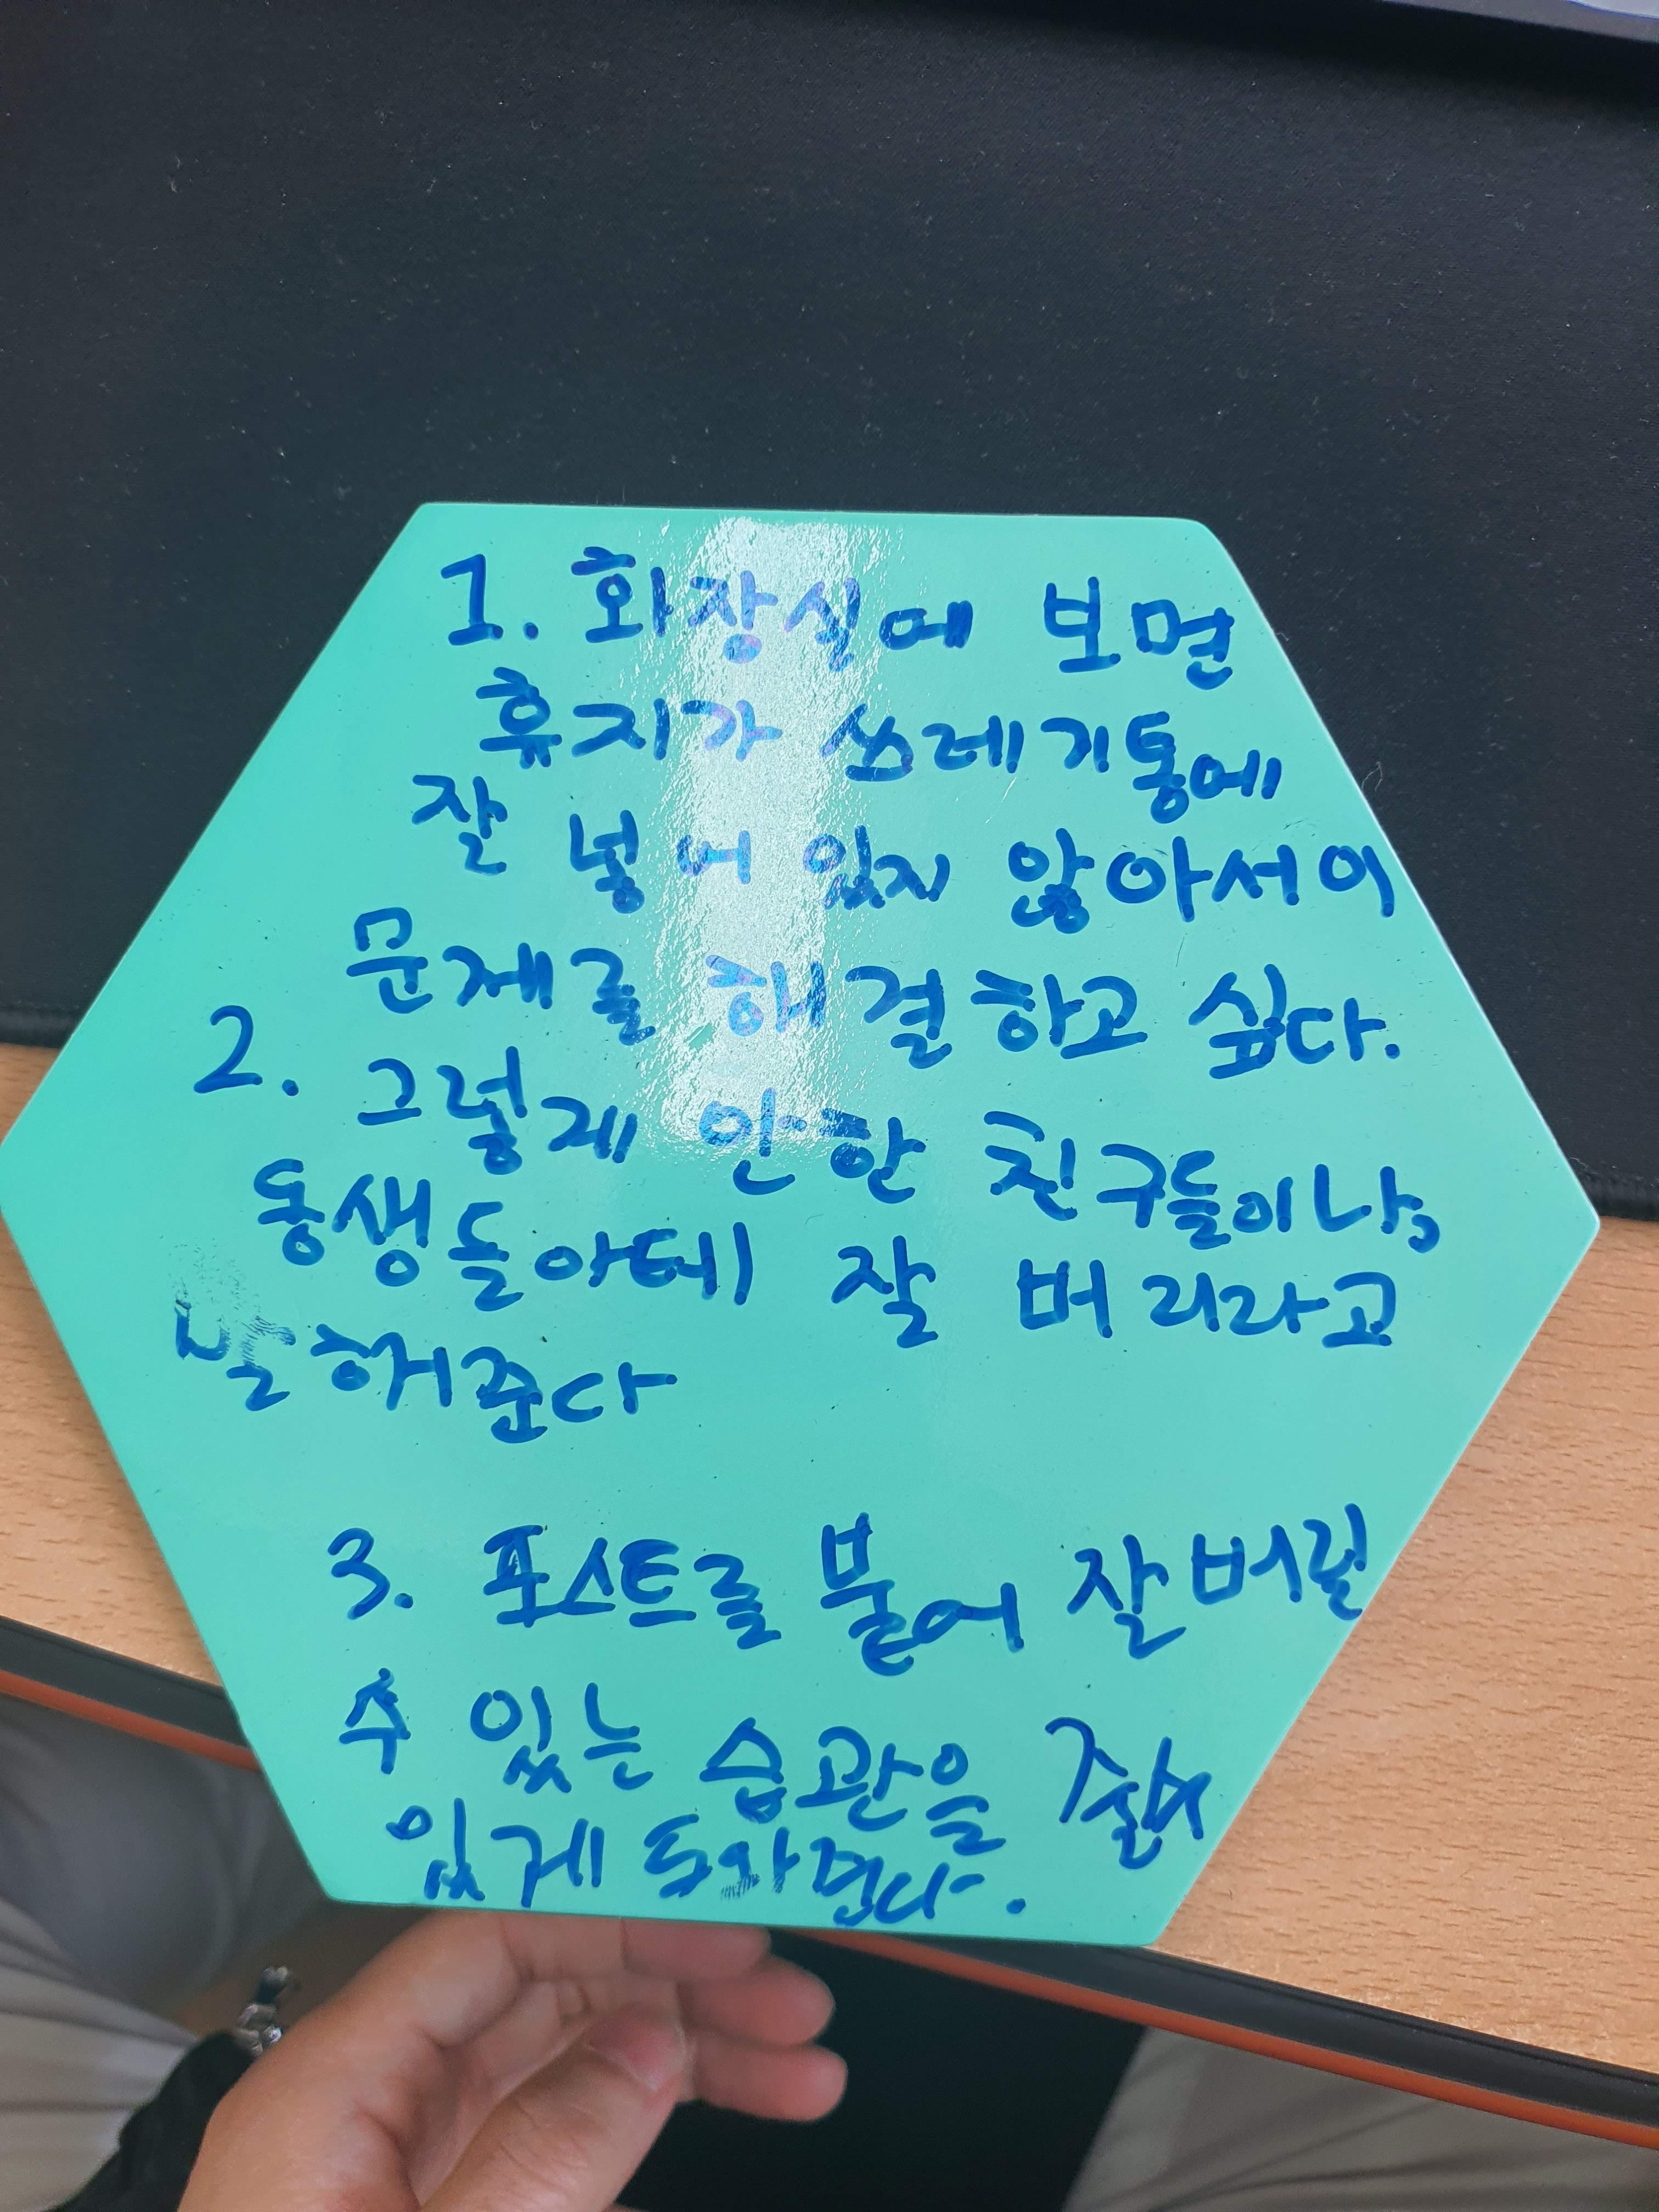 1. 화장실에 보면
휴지가 쓰레기통에
잘 넣어 있지 않아서 이
문제를 해결하고 싶다.
2. 그렇게 안한 친구들이나,
동생들아테 잘 버리라고
해준다
3. 포스트를 붙어 잘 버릴
수 있는 습관을
있게 도와준다.